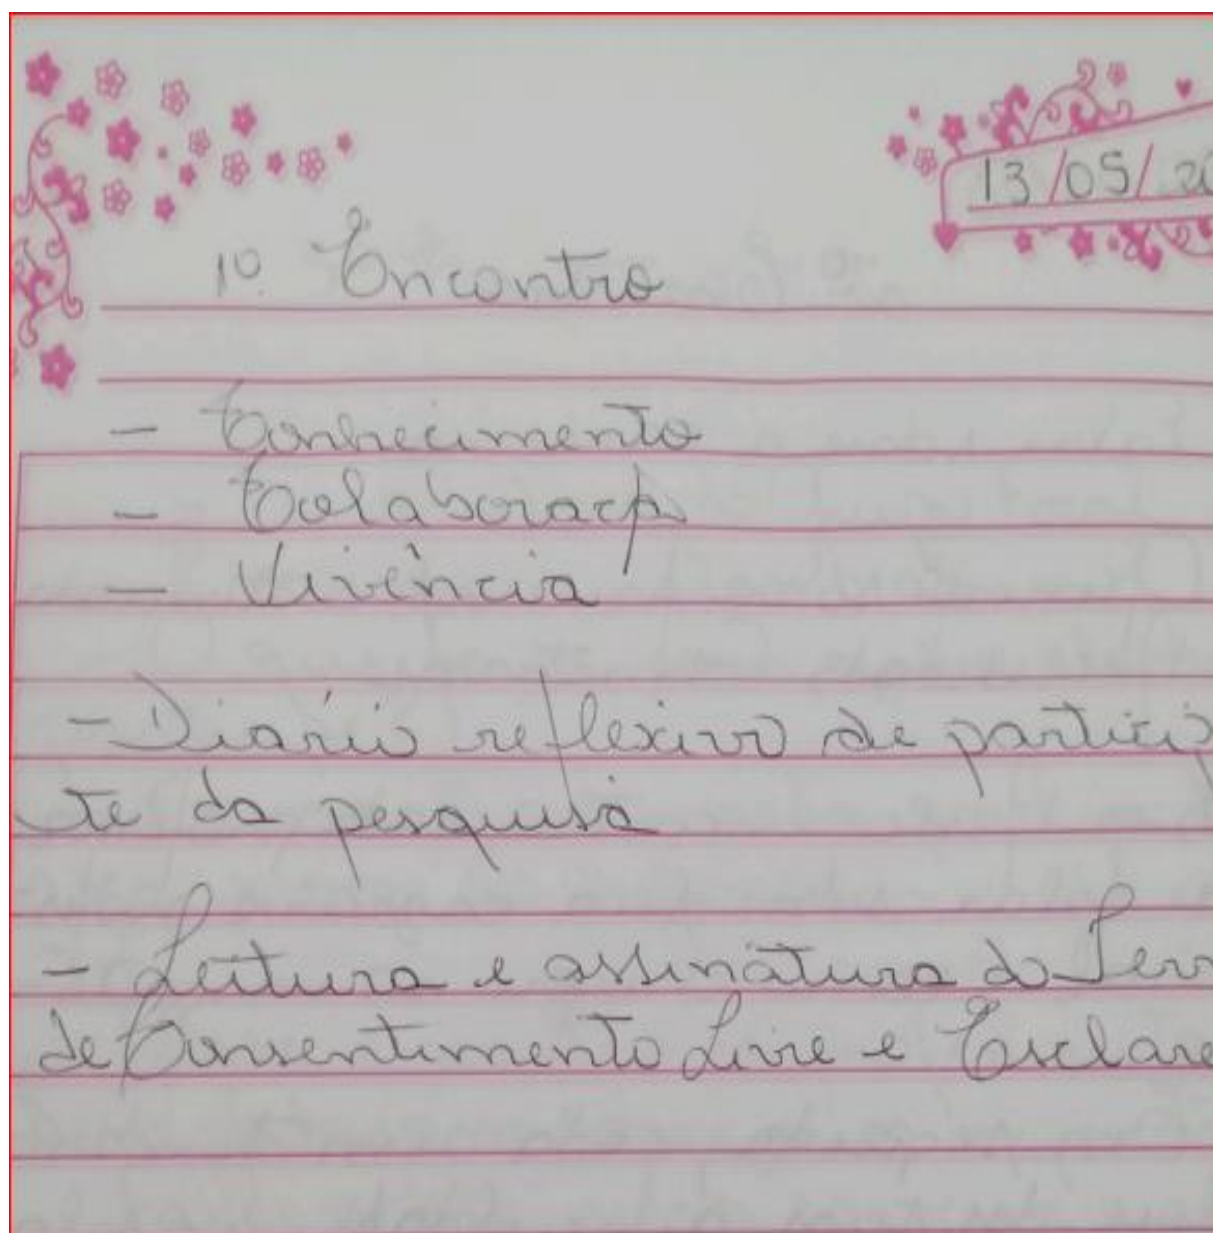 13/05/20
1º Encontro
- Conhecimento
- Colaboração
- Vivência
- Diário reflexivo de particip
te da pesquisa
- Leitura e assinatura do Term
de Consentimento Livre e Esclare